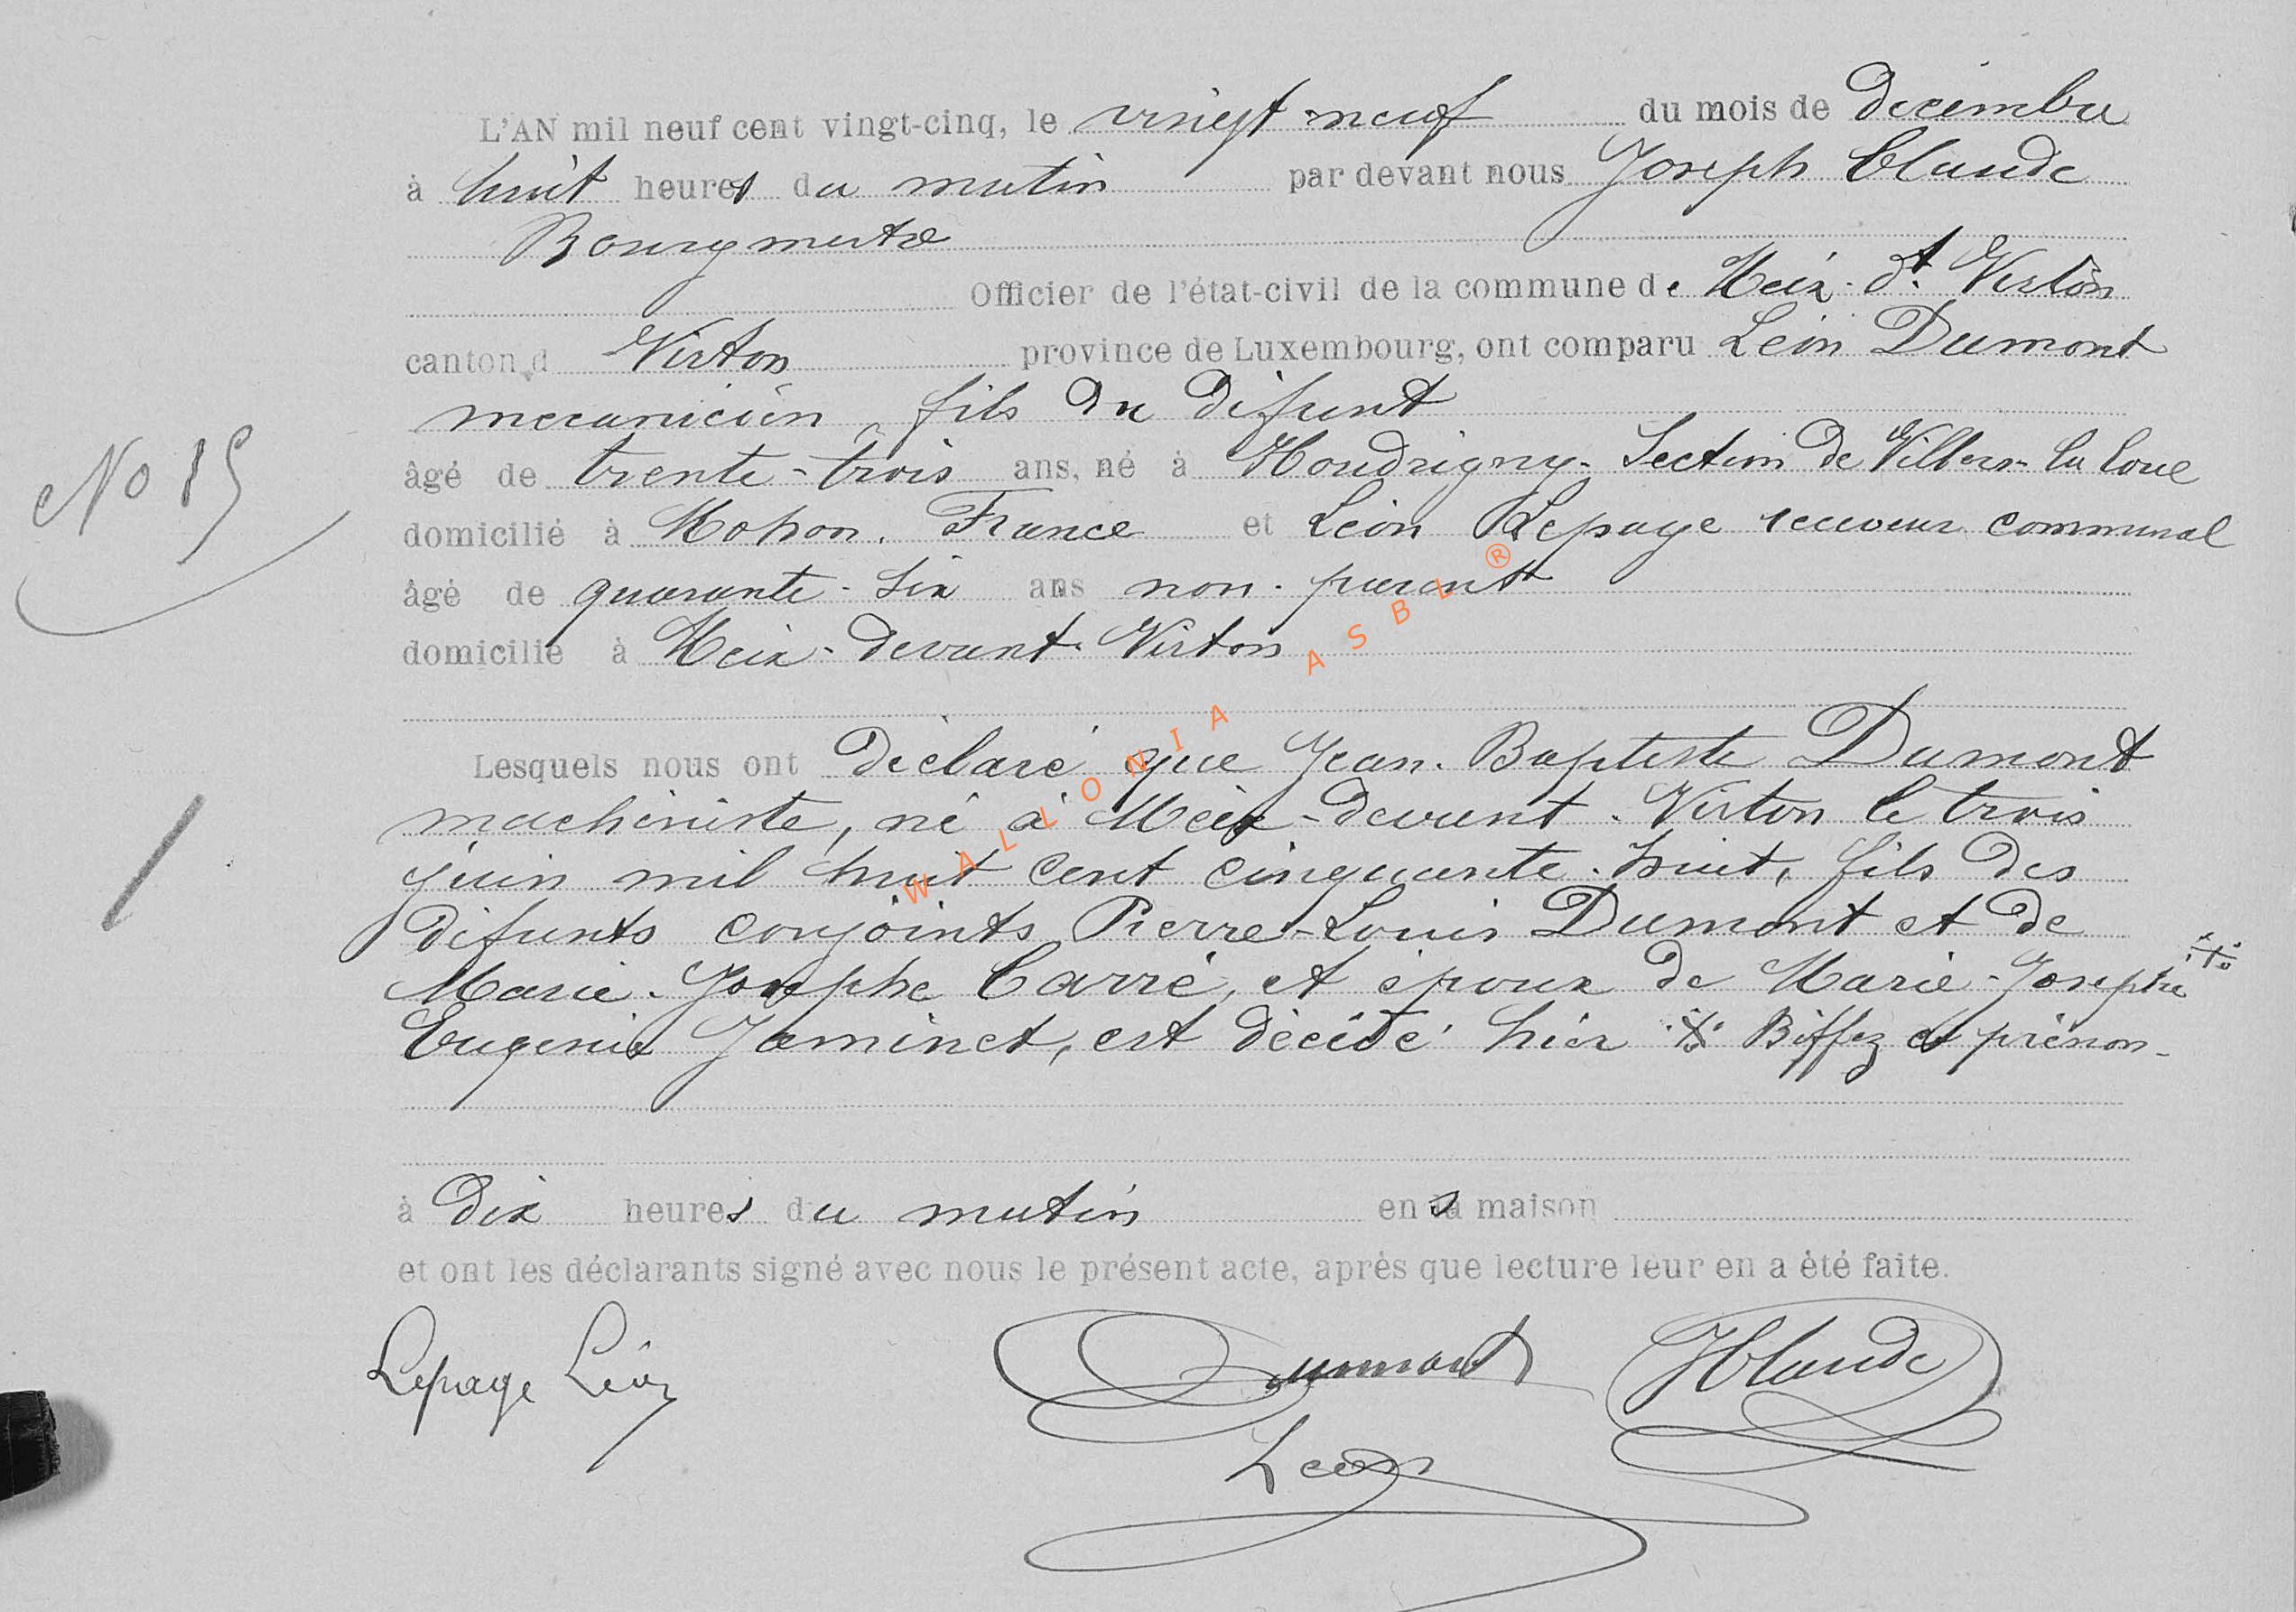 L'AN mil neuf cent vingt-cinq, le vingt-neuf du mois de décembre
à huit heures du matin par devant nous Joseph Claude
Bourgmestre
Officier de l'état-civil de la commune de Meix-dt Virton
canton d Virton province de Luxembourg, ont comparu Léon Dumont
mécanicien, fils du défunt
No 15
âgé de trente-trois ans, né à Houdrigny-Section de Villers-la loue
domicilié à Mohon, France et Léon Lepage receveur communal
âgé de quarante-six ans non-parent
domicilié à Meix-devant-Virton
Lesquels nous ont déclaré que Jean-Baptiste Dumont
machiniste, né à Meix-devant-Virton le trois
juin mil huit cent cinquante-huit, fils des
défunts conjoints Pierre-Louis Dumont et de
Marie-Josephe Carré, et époux de Marie-Josephe
Eugenie Jaminet, est décédé hier Biffez ce prénom-
à dix heures du matin en sa maison
et ont les déclarants signé avec nous le présent acte, après que lecture leur en a été faite.
Lepage Léon Dumont JClaude
Leon
WALLONIA ASBL ®